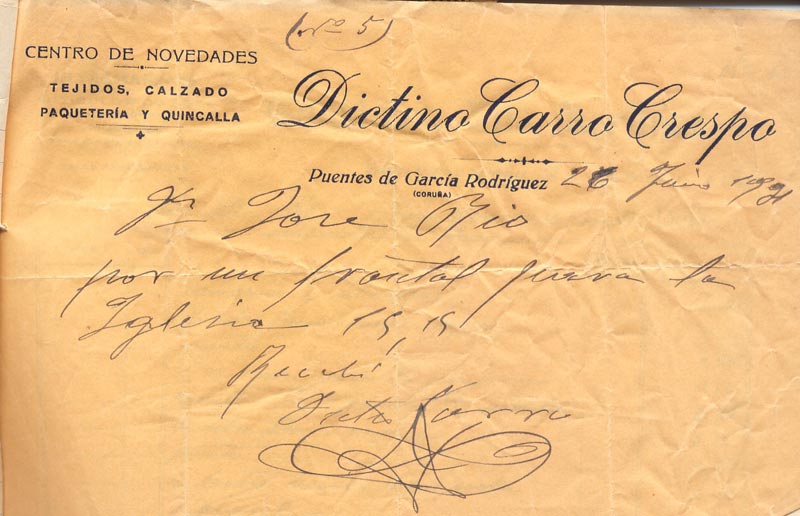 (Nº 5)
CENTRO DE NOVEDADES
TEJIDOS, CALZADO
PAQUETERÍA Y QUINCALLA
Dictino Carro Crespo
Puentes de García Rodríguez 26 Junio
(CORUÑA)
Jose Rio
por un frontal para la
Iglesia 15,15
Recibí
Carro